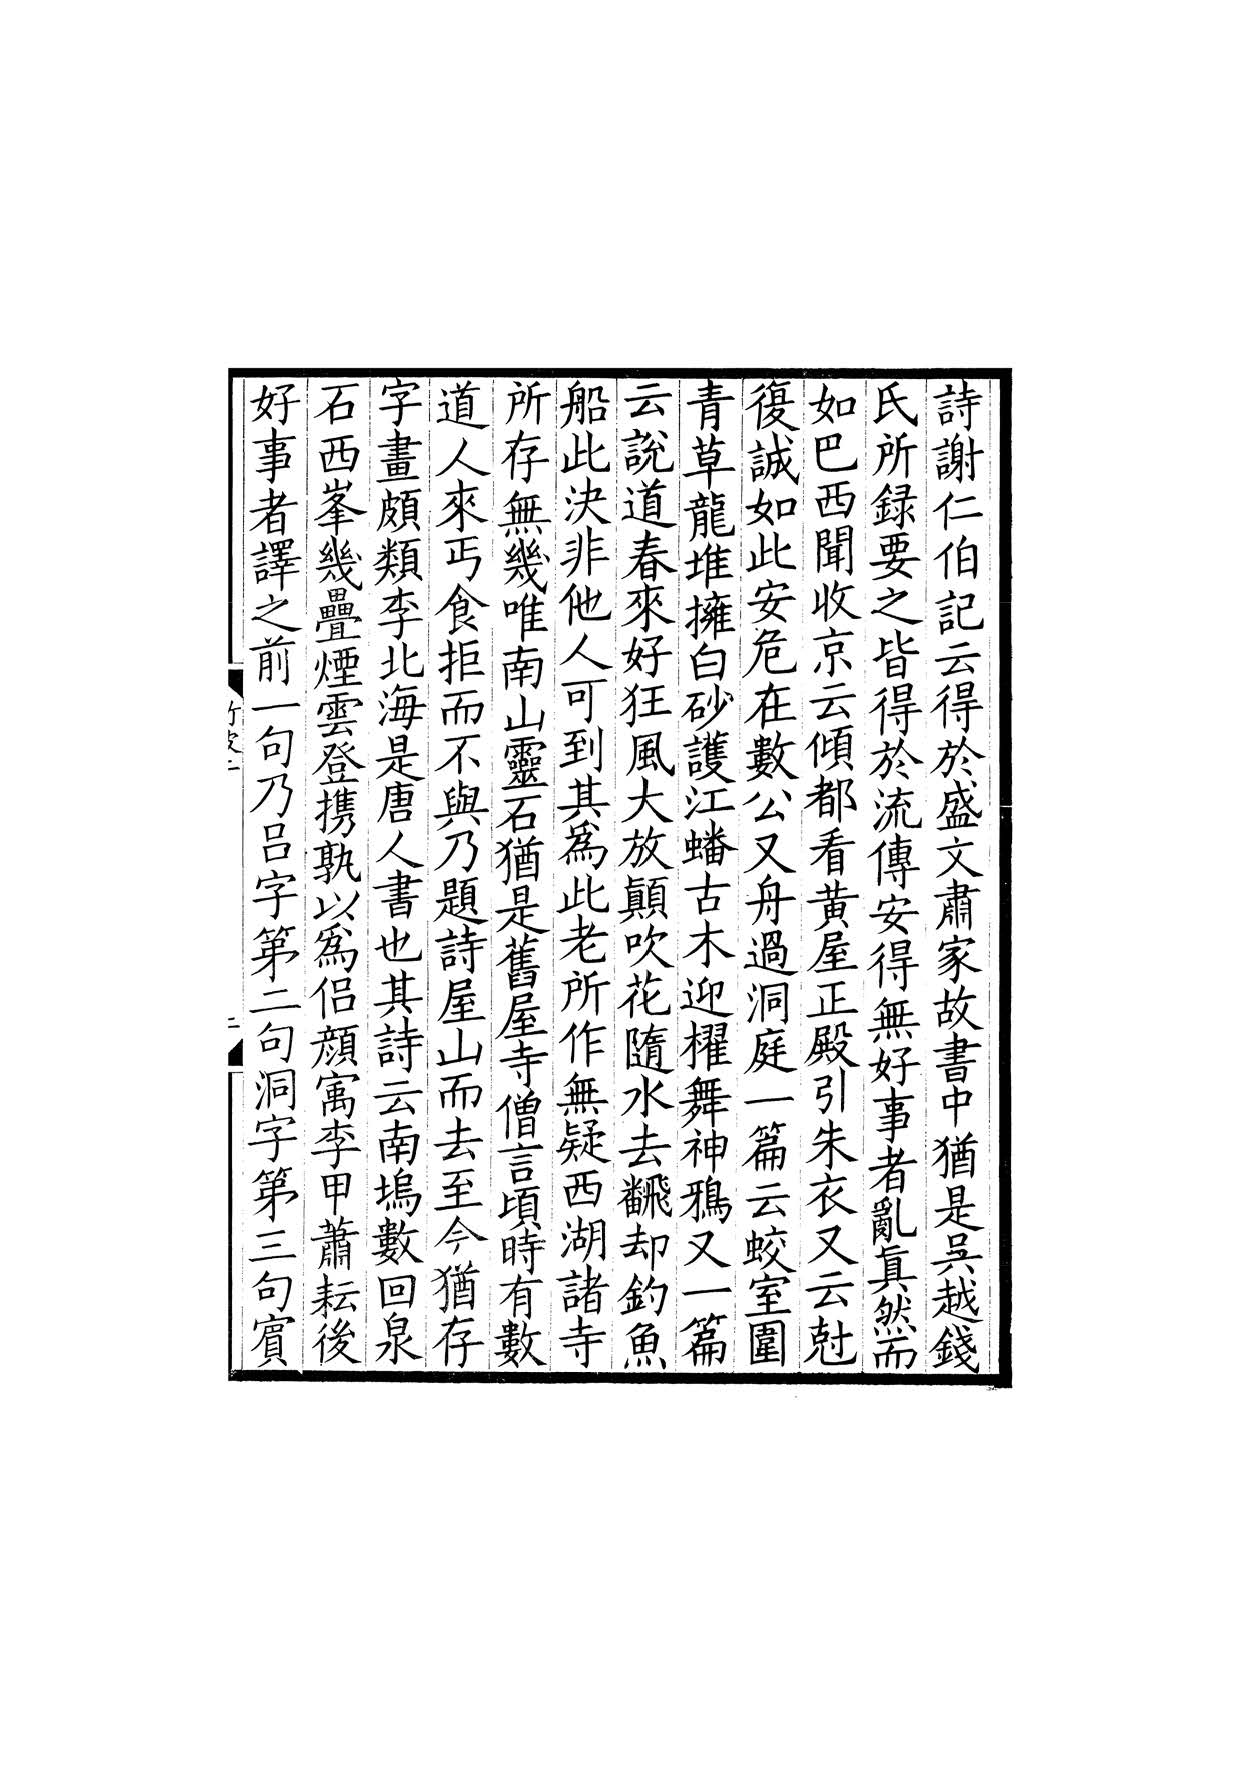 詩謝仁伯記云得於盛文肅家故書中猶是吳越錢
氏所録要之皆得於流傳安得無好事者亂眞然而
如巴西聞收京云傾都看黄屋正殿引朱衣又云尅
復誠如此安危在數公又舟過洞庭一篇云蛟室圍
青草龍堆擁白砂護江蟠古木迎櫂舞神鴉又一篇
云說道春來好狂風大放顛吹花隨水去飜却釣魚
船此決非他人可到其爲此老所作無疑西湖諸寺
所存無幾唯南山靈石猶是舊屋寺僧言頃時有數
道人來丐食拒而不與乃題詩屋山而去至今猶存
字畫頗類李北海是唐人書也其詩云南塢數回泉
石西峯幾疊煙雲登携孰以爲侣顔寓李甲蕭耘後
好事者譯之前一句乃吕字第二句洞字第三句賓